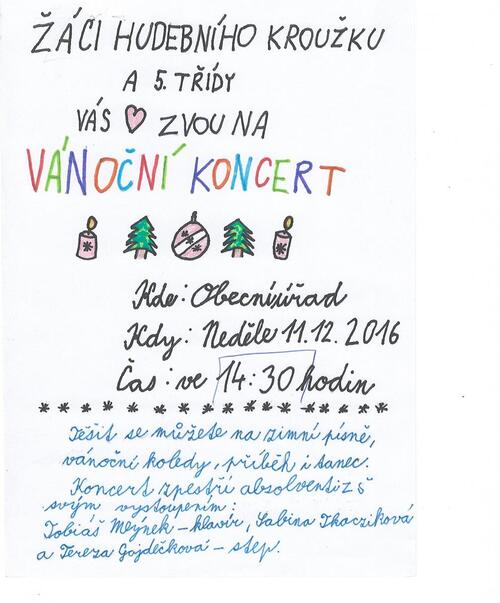 ŽÁCI HUDEBNÍHO KROUŽKU
A 5. TŘÍDY
VÁS ZVOU NA
VÁNOČNÍ KONCERT
Kde: Obecní úřad
Kdy: Neděle 11.12. 2016
Čas: ve 14:30 hodin
Těšit se můžete na zimní písně,
vánoční koledy, příběh i tanec.
Koncert zpestří absolventi ZŠ
svým vystoupením:
Tobiáš Mlýnek – klavír, Sabina Tkacziková
a Tereza Gajdečková – step.